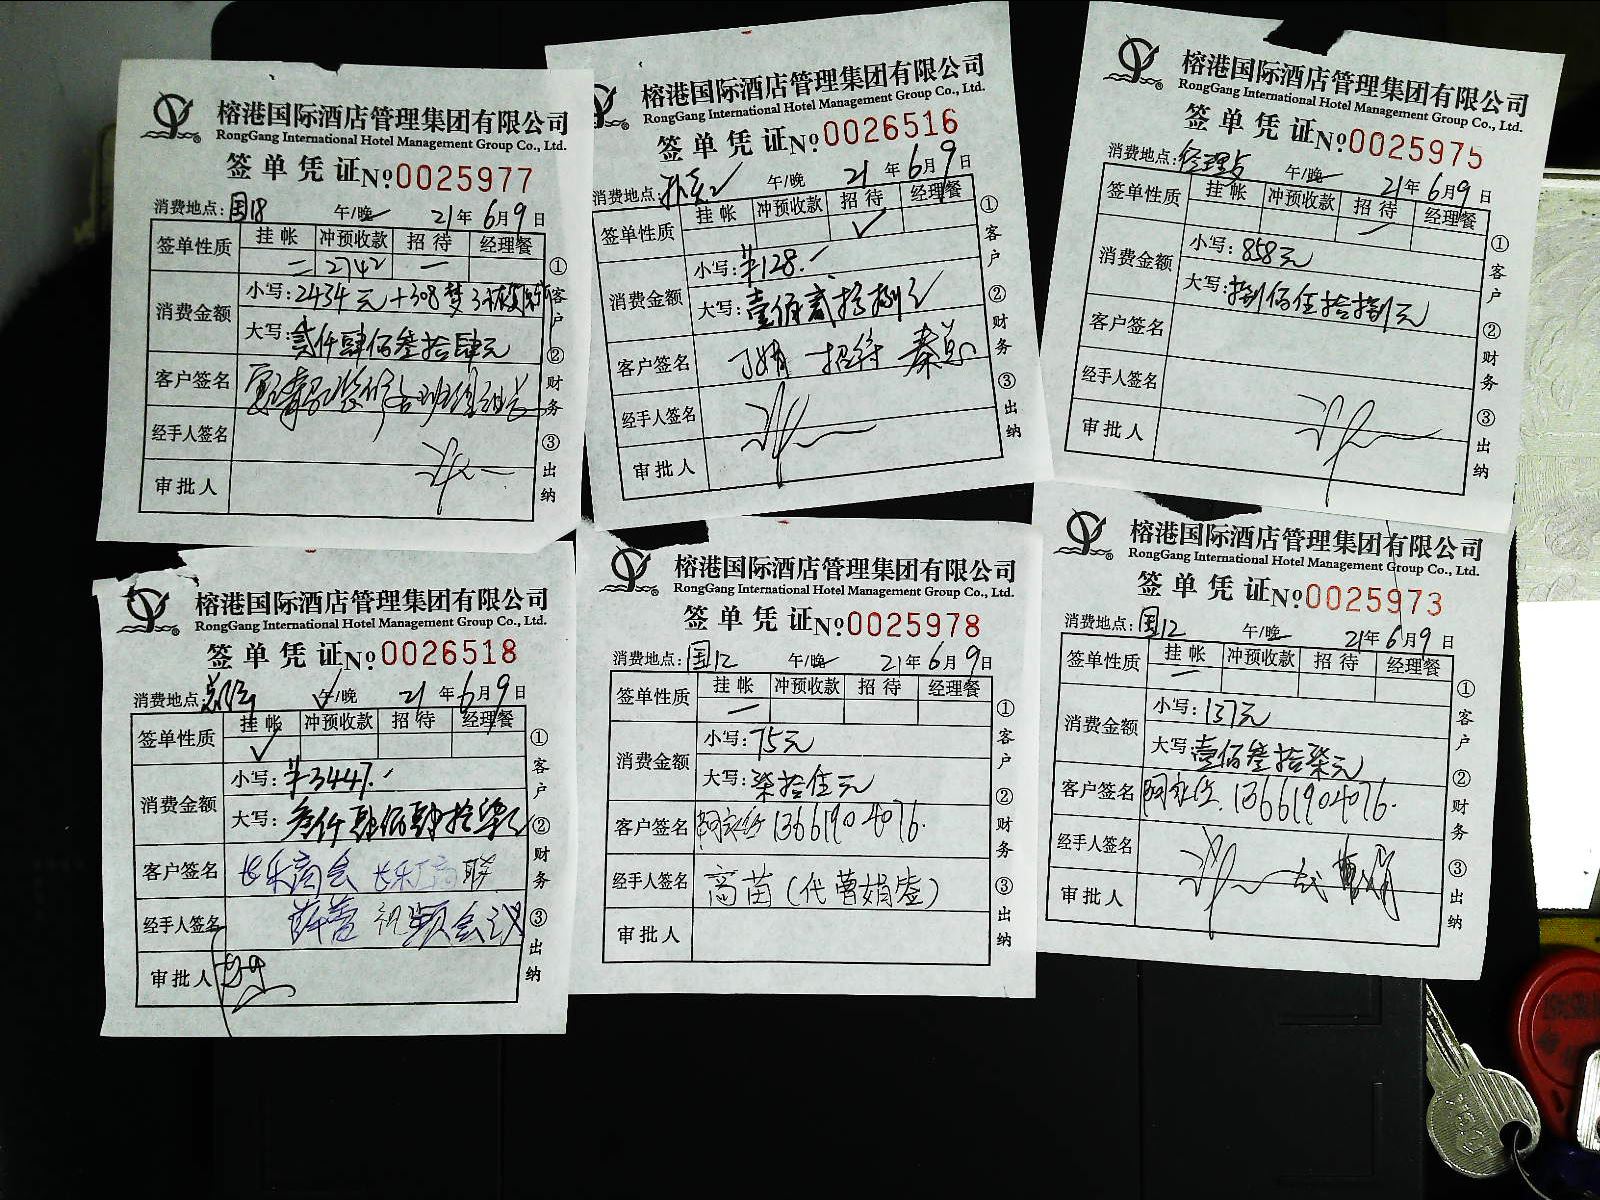 榕港国际酒店管理集团有限公司
RongGang International Hotel Management Group Co., Ltd.
签单凭证 №0025977
消费地点:国18 午/晚 21年6月9日
签单性质 挂帐 冲预收款 招待 经理餐
2742
消费金额 小写:2434元+308
大写:贰仟肆佰叁拾肆元
客户签名
经手人签名
审批人
①客户 ②财务 ③出纳
榕港国际酒店管理集团有限公司
RongGang International Hotel Management Group Co., Ltd.
签单凭证 №0026516
消费地点: 午/晚 21年6月9日
签单性质 挂帐 冲预收款 招待 经理餐
✓
消费金额 小写:¥128.-
大写:壹佰贰拾捌元
客户签名 丁娟 招待 秦总
经手人签名
审批人
①客户 ②财务 ③出纳
榕港国际酒店管理集团有限公司
RongGang International Hotel Management Group Co., Ltd.
签单凭证 №0025975
消费地点:经理 午/晚 21年6月9日
签单性质 挂帐 冲预收款 招待 经理餐
消费金额 小写:858元
大写:捌佰伍拾捌元
客户签名
经手人签名
审批人
①客户 ②财务 ③出纳
榕港国际酒店管理集团有限公司
RongGang International Hotel Management Group Co., Ltd.
签单凭证 №0026518
消费地点: 午/晚 21年6月9日
签单性质 挂帐 冲预收款 招待 经理餐
✓
消费金额 小写:¥3447.-
大写:叁仟肆佰肆拾柒元
客户签名 长乐商会 长乐工商联
经手人签名 薛营 视频会议
审批人
①客户 ②财务 ③出纳
榕港国际酒店管理集团有限公司
RongGang International Hotel Management Group Co., Ltd.
签单凭证 №0025978
消费地点:国12 午/晚 21年6月9日
签单性质 挂帐 冲预收款 招待 经理餐
消费金额 小写:75元
大写:柒拾伍元
客户签名 13661904076.
经手人签名 高苗(代曹娟签)
审批人
①客户 ②财务 ③出纳
榕港国际酒店管理集团有限公司
RongGang International Hotel Management Group Co., Ltd.
签单凭证 №0025973
消费地点:国12 午/晚 21年6月9日
签单性质 挂帐 冲预收款 招待 经理餐
消费金额 小写:137元
大写:壹佰叁拾柒元
客户签名 13661904076.
经手人签名
审批人 代 曹娟
①客户 ②财务 ③出纳